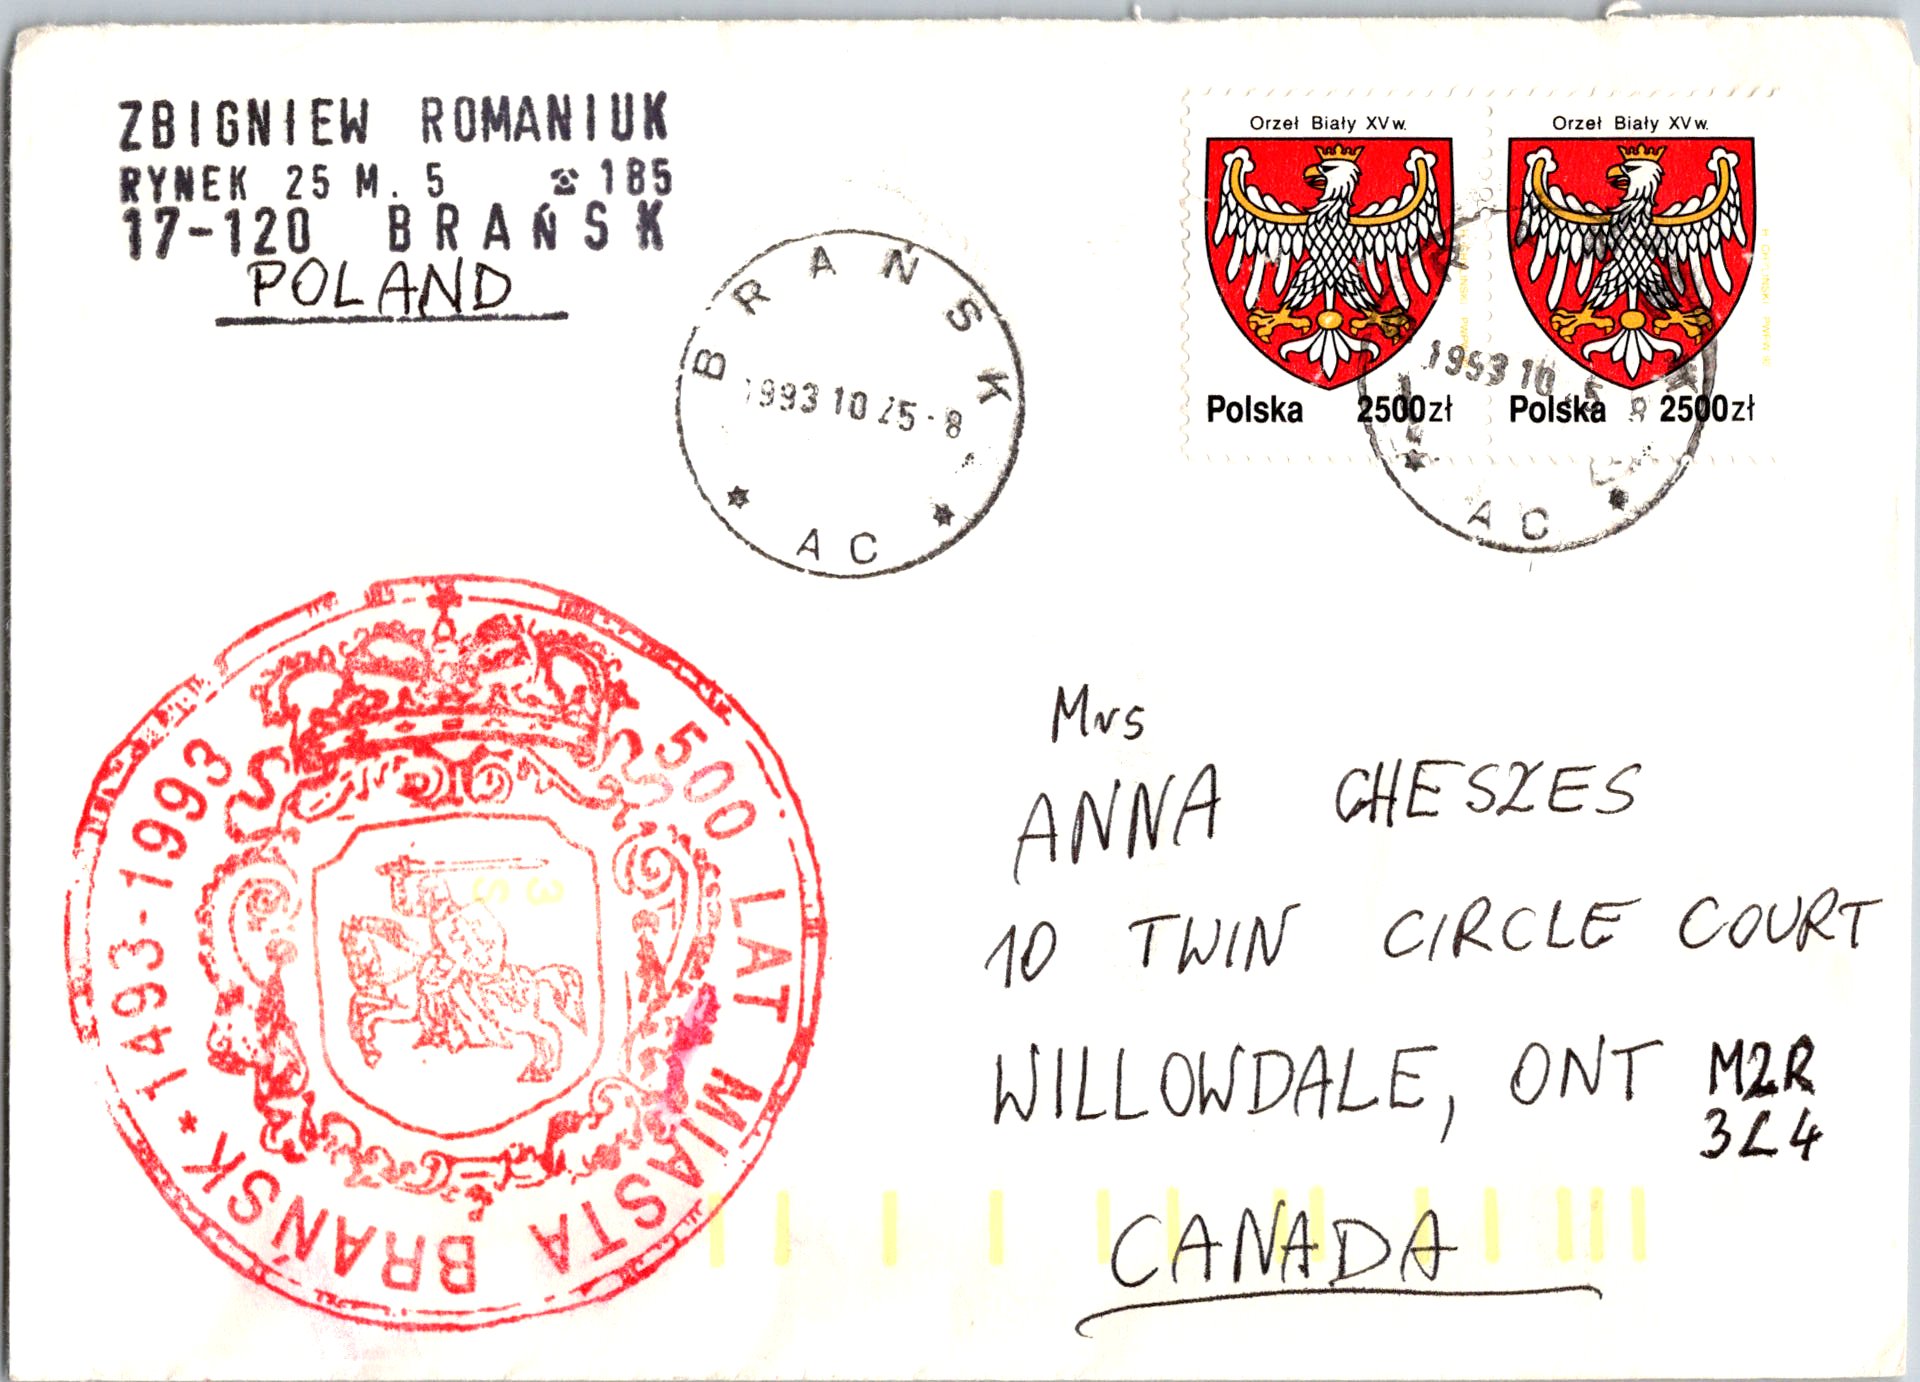 ZBIGNIEW ROMANIUK
RYNEK 25 M. 5 ☎ 185
17-120 BRAŃSK
POLAND
BRAŃSK
1993 10 25-8
AC
Orzeł Biały XVw.
Polska 2500zł
Orzeł Biały XVw.
Polska 2500zł
AC
1493-1993
500 LAT MIASTA BRAŃSK *
Mrs
ANNA CHESZES
10 TWIN CIRCLE COURT
WILLOWDALE, ONT M2R
3L4
CANADA